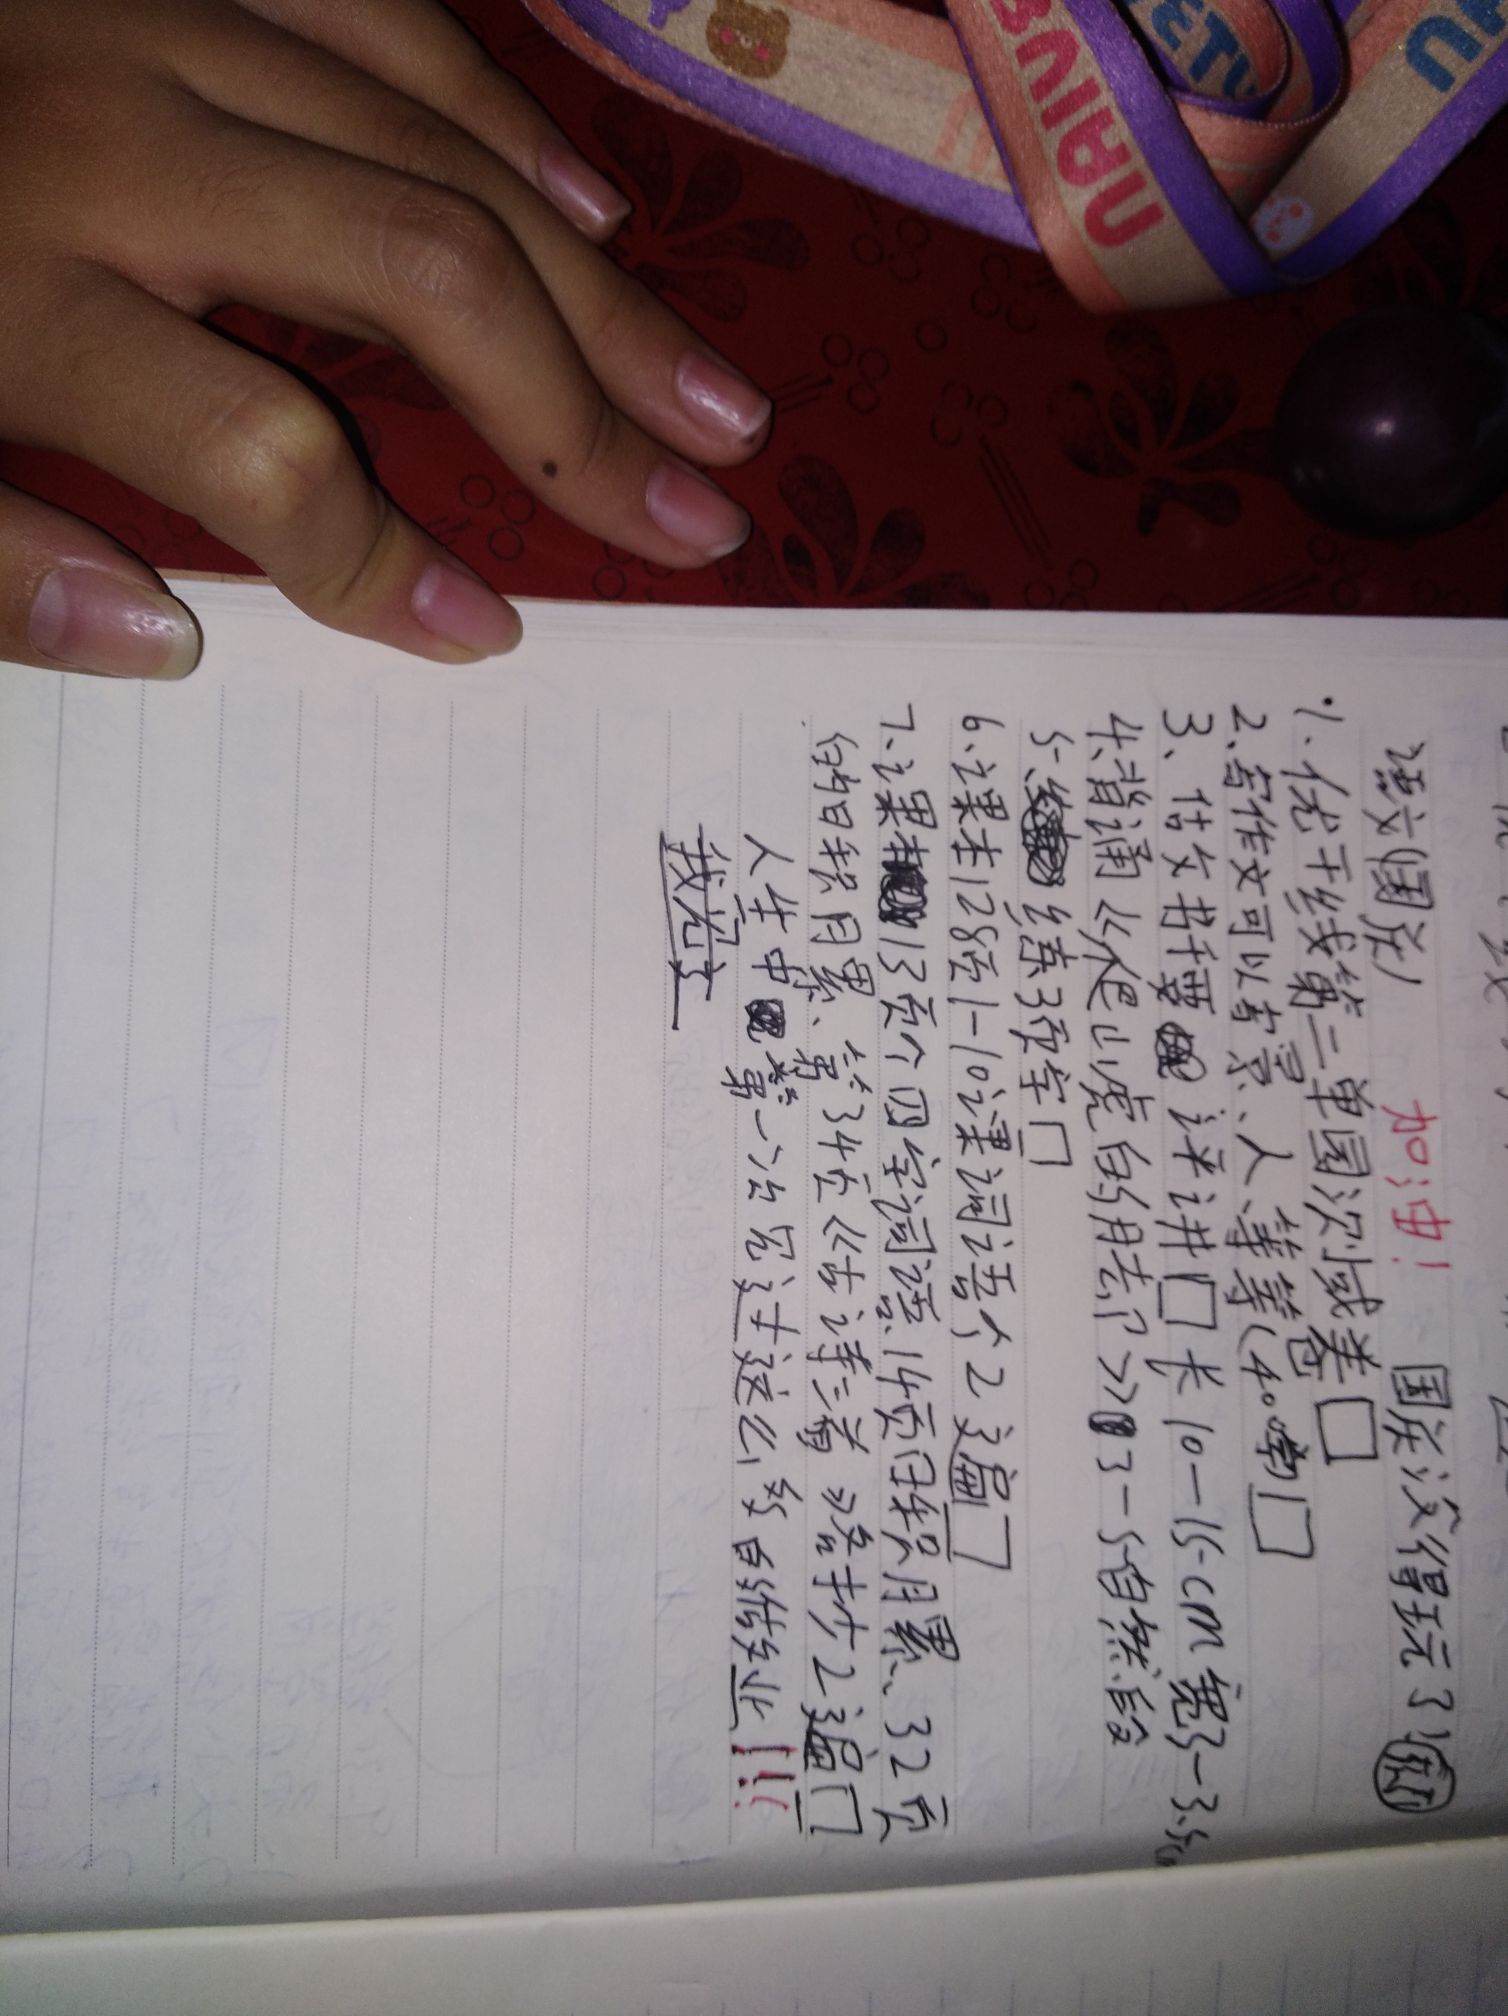 语文(国庆)
加油!
国庆没得玩了
1.优干线第二单园次域卷
2.写作文可以写景、人、等等(40
3、估文书千要 评讲 长10-15cm 宽3-3.5c
4.背诵《爬山虎的脚》 3-5自然段
5. 练3张字
6.课本128页1-10课词语个2遍
7.课本 13页个四字词语.14页日积月累、32页
的日积月累、第34页《古诗三首》各抄2遍
人生中 第一次见过这么多白作业!!!
我完了
NAIVE